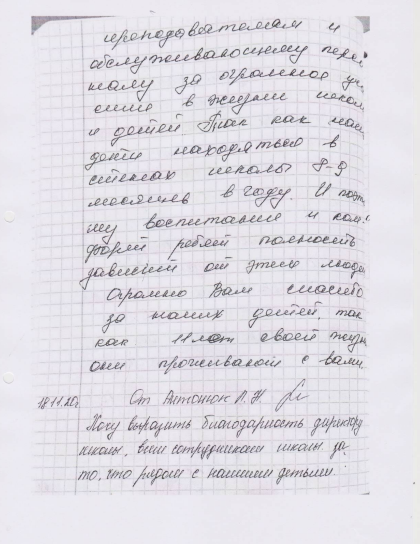 преподавателям и
обслуживающему персо
налу за огромное уча
стие в жизни школ
и детей. Так как наши
дети находяться в
стенах школы 8-9
месяцев в году. И поэто
му воспитание и ком
форт ребят полность
зависит от этих людей
Огромно Вам спасибо
за наших детей, так
как 11 лет своей жизн
они проживают с вами.
18.11.20г От Антонюк Л. Н
Хочу выразить благодарность директору
школы, всем сотрудникам школы за
то, что рядом с нашими детьми.